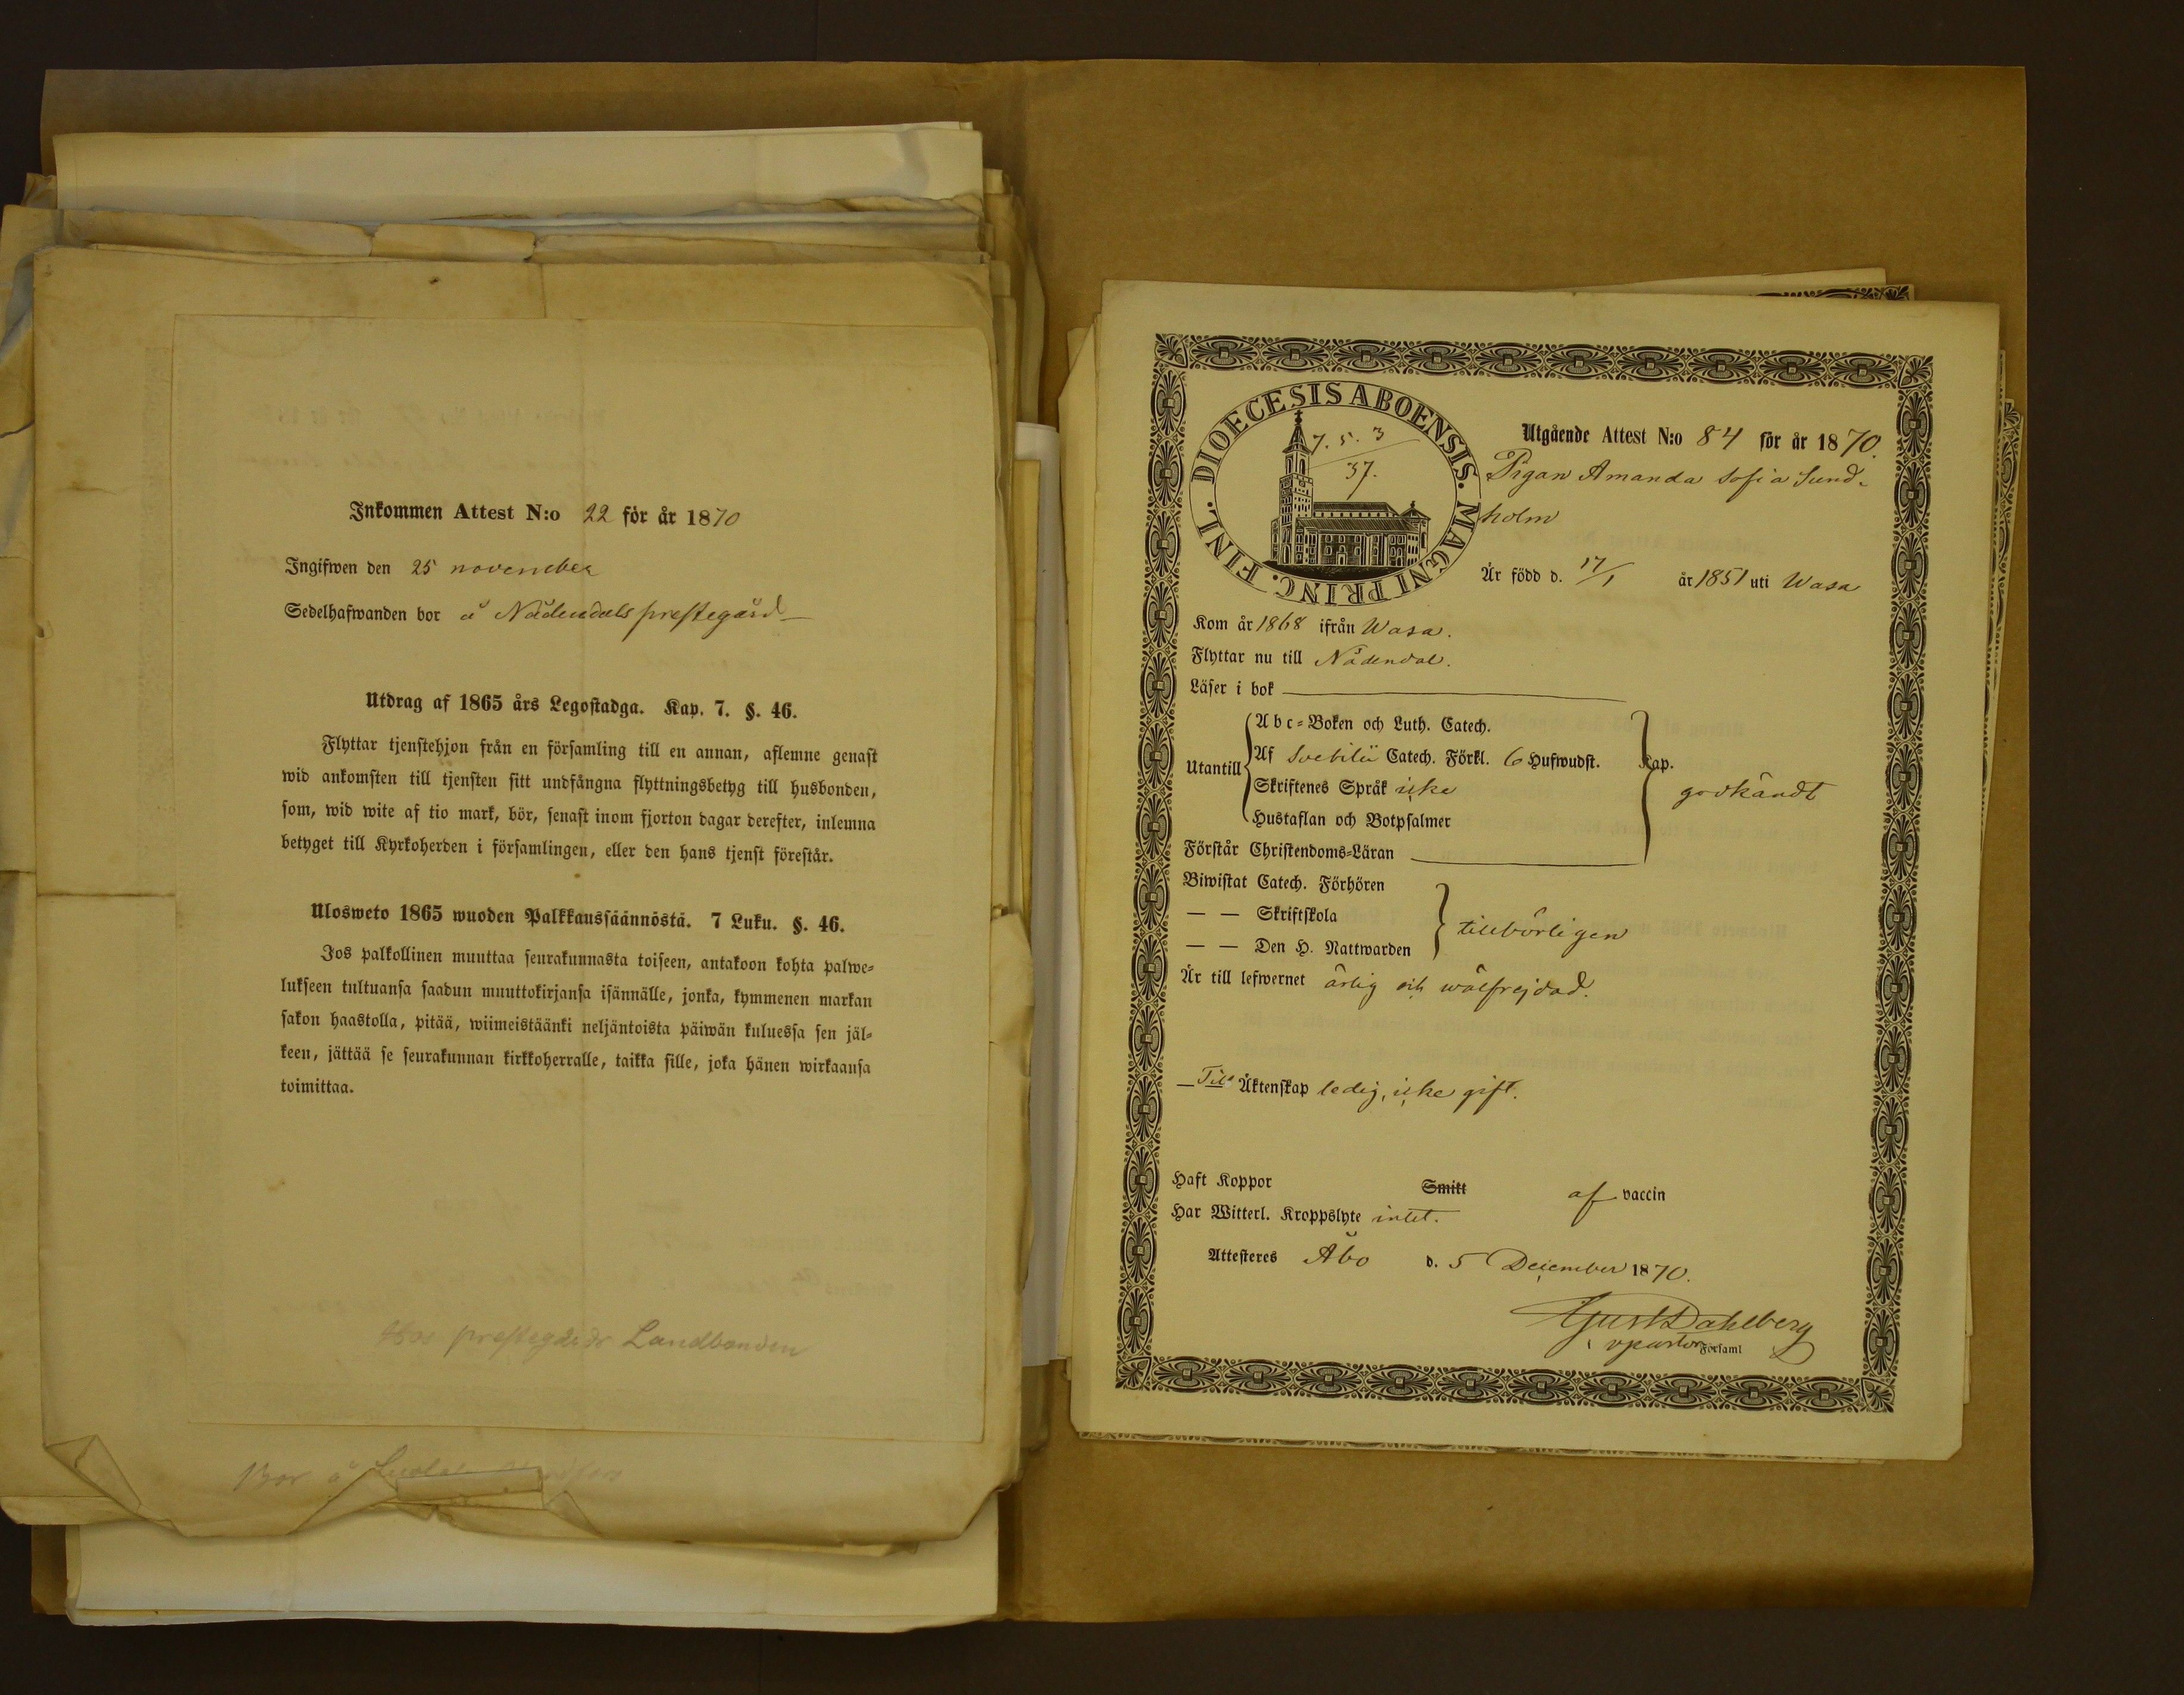 Inkommen Attest N:o 22 för år 1870
Ingifwen den 25 november
Sedelhafwanden bor å Nådendals prestegård
Utdrag af 1865 års Legostadga. Kap. 7. §. 46.
Flyttar tjenstehjon från en församling till en annan, aflemne genast
wid ankomsten till tjensten sitt undfångna flyttningsbetyg till husbonden,
som, wid wite af tio mark, bör, senast inom fjorton dagar derefter, inlemna
betyget till Kyrkoherden i församlingen, eller den hans tjenst förestår.
Ulosweto 1865 wuoden Palkkaussäännöstä. 7 Luku. §. 46.
Jos palkollinen muuttaa seurakunnasta toiseen, antakoon kohta palwe-
lukseen tultuansa saadun muuttokirjansa isännälle, jonka, kymmenen markan
sakon haastolla, pitää, wiimeistäänki neljäntoista päiwän kuluessa sen jäl-
keen, jättää se seurakunnan kirkkoherralle, taikka sille, joka hänen wirkaansa
toimittaa.
Hos prestegårds Landbonden
Bor å
DIOECESIS ABOENSIS. MAGNI PRINC. FINL.
7. 5. 3
37.
Utgående Attest N:o 84 för år 1870.
Pigan Amanda Sofia Sund-
holm
Är född d. 17/1 år 1851 uti Wasa
Kom år 1868 ifrån Wasa.
Flyttar nu till Nådendal.
Läser i bok
Utantill
Abc-Boken och Luth. Catech.
Af Svebilii Catech. Förkl. 6 Hufwudst. Kap.
Skriftenes Språk icke
godkändt
Hustaflan och Botpsalmer
Förstår Christendoms-Läran
Biwistat Catech. Förhören
— — Skriftskola
tillbörligen
— — Den H. Nattwarden
Är till lefwernet ärlig och wälfrejdad.
— Till Äktenskap ledig, icke gift.
Haft Koppor Smitt af vaccin
Har Witterl. Kroppslyte intet.
Attesteres Åbo d. 5 December 1870.
Gust Dahlberg
v pastor Församl